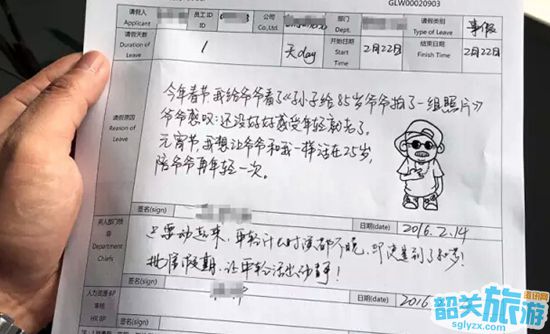 GLW00020903
请假人 员工ID 公司 部门 请假类别 事假
Applicant ID Co,Ltd. Dept. Type of Leave
请假天数 1 天day 开始日期 2月22日 结束日期 2月22日
Duration of Leave Start Time Finish Time
今年春节,我给爷爷看了《孙子给85岁爷爷拍了一组照片》
请假原因 爷爷感叹:还没好好感受年轻就老了。
Reason of Leave 元宵节,我想让爷爷和我一样活在25岁,
陪爷爷再年轻一次。
签名(sign) 日期(date) 2016.2.14
部门
Department Chiefs
年轻什么时候都不晚,即使到了80岁!
批准假期,让年轻活出动静!
签名(sign) 日期(date) 2016
人力资源BP
审核
HR BP
韶关旅游
资讯网
www.sglyzx.com